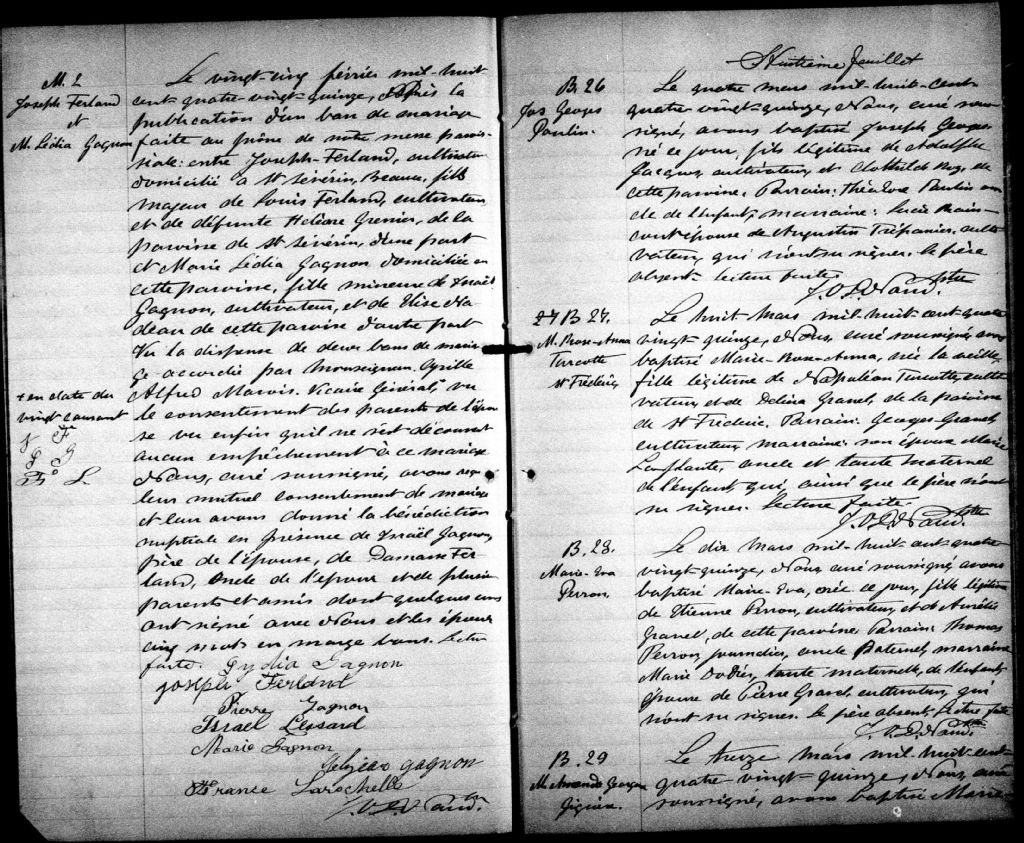 M. 2
Joseph Ferland
et
M. Lédia Gagnon
Le vingt-cinq février mil-huit
cent-quatre-vingt-quinze, après la
publication d'un ban de mariage
faite au prône de notre messe parois-
siale: entre Joseph-Ferland, cultivateur
domicilié à St Sévérin, Beauce, fils
majeur de Louis Ferland, cultivateur
et de défunte Grenier, de la
paroisse de St Sévérin, d'une part
et Marie Lédia Gagnon domiciliée en
cette paroisse, fille mineure de Israël
Gagnon, cultivateur, et de Elise Na-
deau de cette paroisse d'autre part
Vu la dispense de deux bans de maria-
ge accordée par Monseigneur Cyrille
Alfred Marois, Vicaire Général, vu
+ en date du
vingt courant
le consentement des parents de l'épou
se vu enfin qu'il ne s'est découvert
aucun empêchement à ce mariage
Nous, curé soussigné, avons reçu
leur mutuel consentement de mariage
et leur avons donné la bénédiction
nuptiale en présence de Israël Gagnon,
père de l'épouse, de Damase Fer-
land, oncle de l'époux et de plusieurs
parents et amis dont quelques uns
ont signé avec Nous et les époux
cinq mots en marge bons. Lecture
faite. Lydia Gagnon
Joseph Ferland
Pierre Gagnon
Israel Lessard
Marie Gagnon
gagnon
France Larochelle
Huitième feuillet
B. 26
Jos Georges
Poulin.
Le quatre mars mil-huit-cent-
quatre vingt-quinze, Nous, curé sous-
signé, avons baptisé Joseph Georges
né ce jour, fils légitime de Adolphe
Jacques, cultivateur, et Clothilde Roy, de
cette paroisse. Parrain: Poulin on-
cle de l'enfant; marraine: Lucie
épouse de Augustin Trépanier, culti-
vateur, qui n'ont su signer. le père
absent. Lecture faite
27 B 27.
M. Rose-Anna
Turcotte
St Frédéric
Le huit Mars mil-huit cent quatre
vingt quinze, Nous, curé soussigné, avons
baptisé Marie-Rose-Anna, née la veille,
fille légitime de Napoléon Turcotte, culti
vateur, et de Delina Gravel, de la paroisse
de St Frédéric. Parrain: Georges Gravel
cultivateur, marraine: son épouse Marie
Laplante, oncle et tante maternel
de l'enfant qui, ainsi que le père n'ont
su signer. Lecture faite.
B. 28.
Marie-Eva
Perron
Le dix mars mil-huit cent quatre
vingt-quinze, Nous, curé soussigné, avons
baptisé Marie-Eva, née ce jour, fille légitime
de Etienne Perron, cultivateur, et de Aurélie
Gravel, de cette paroisse. Parrain: Thomas
Perron, journalier, oncle Paternel, marraine
Marie Dodier, tante maternelle, de l'enfant,
épouse de Pierre Gravel cultivateur, qui
n'ont su signer. Le père absent, Lecture faite
B. 29
M. Amanda Georgina
Giguère.
Le treize mars mil-huit-cent-
quatre vingt-quinze, Nous, curé
soussigné, avons baptisé Marie-